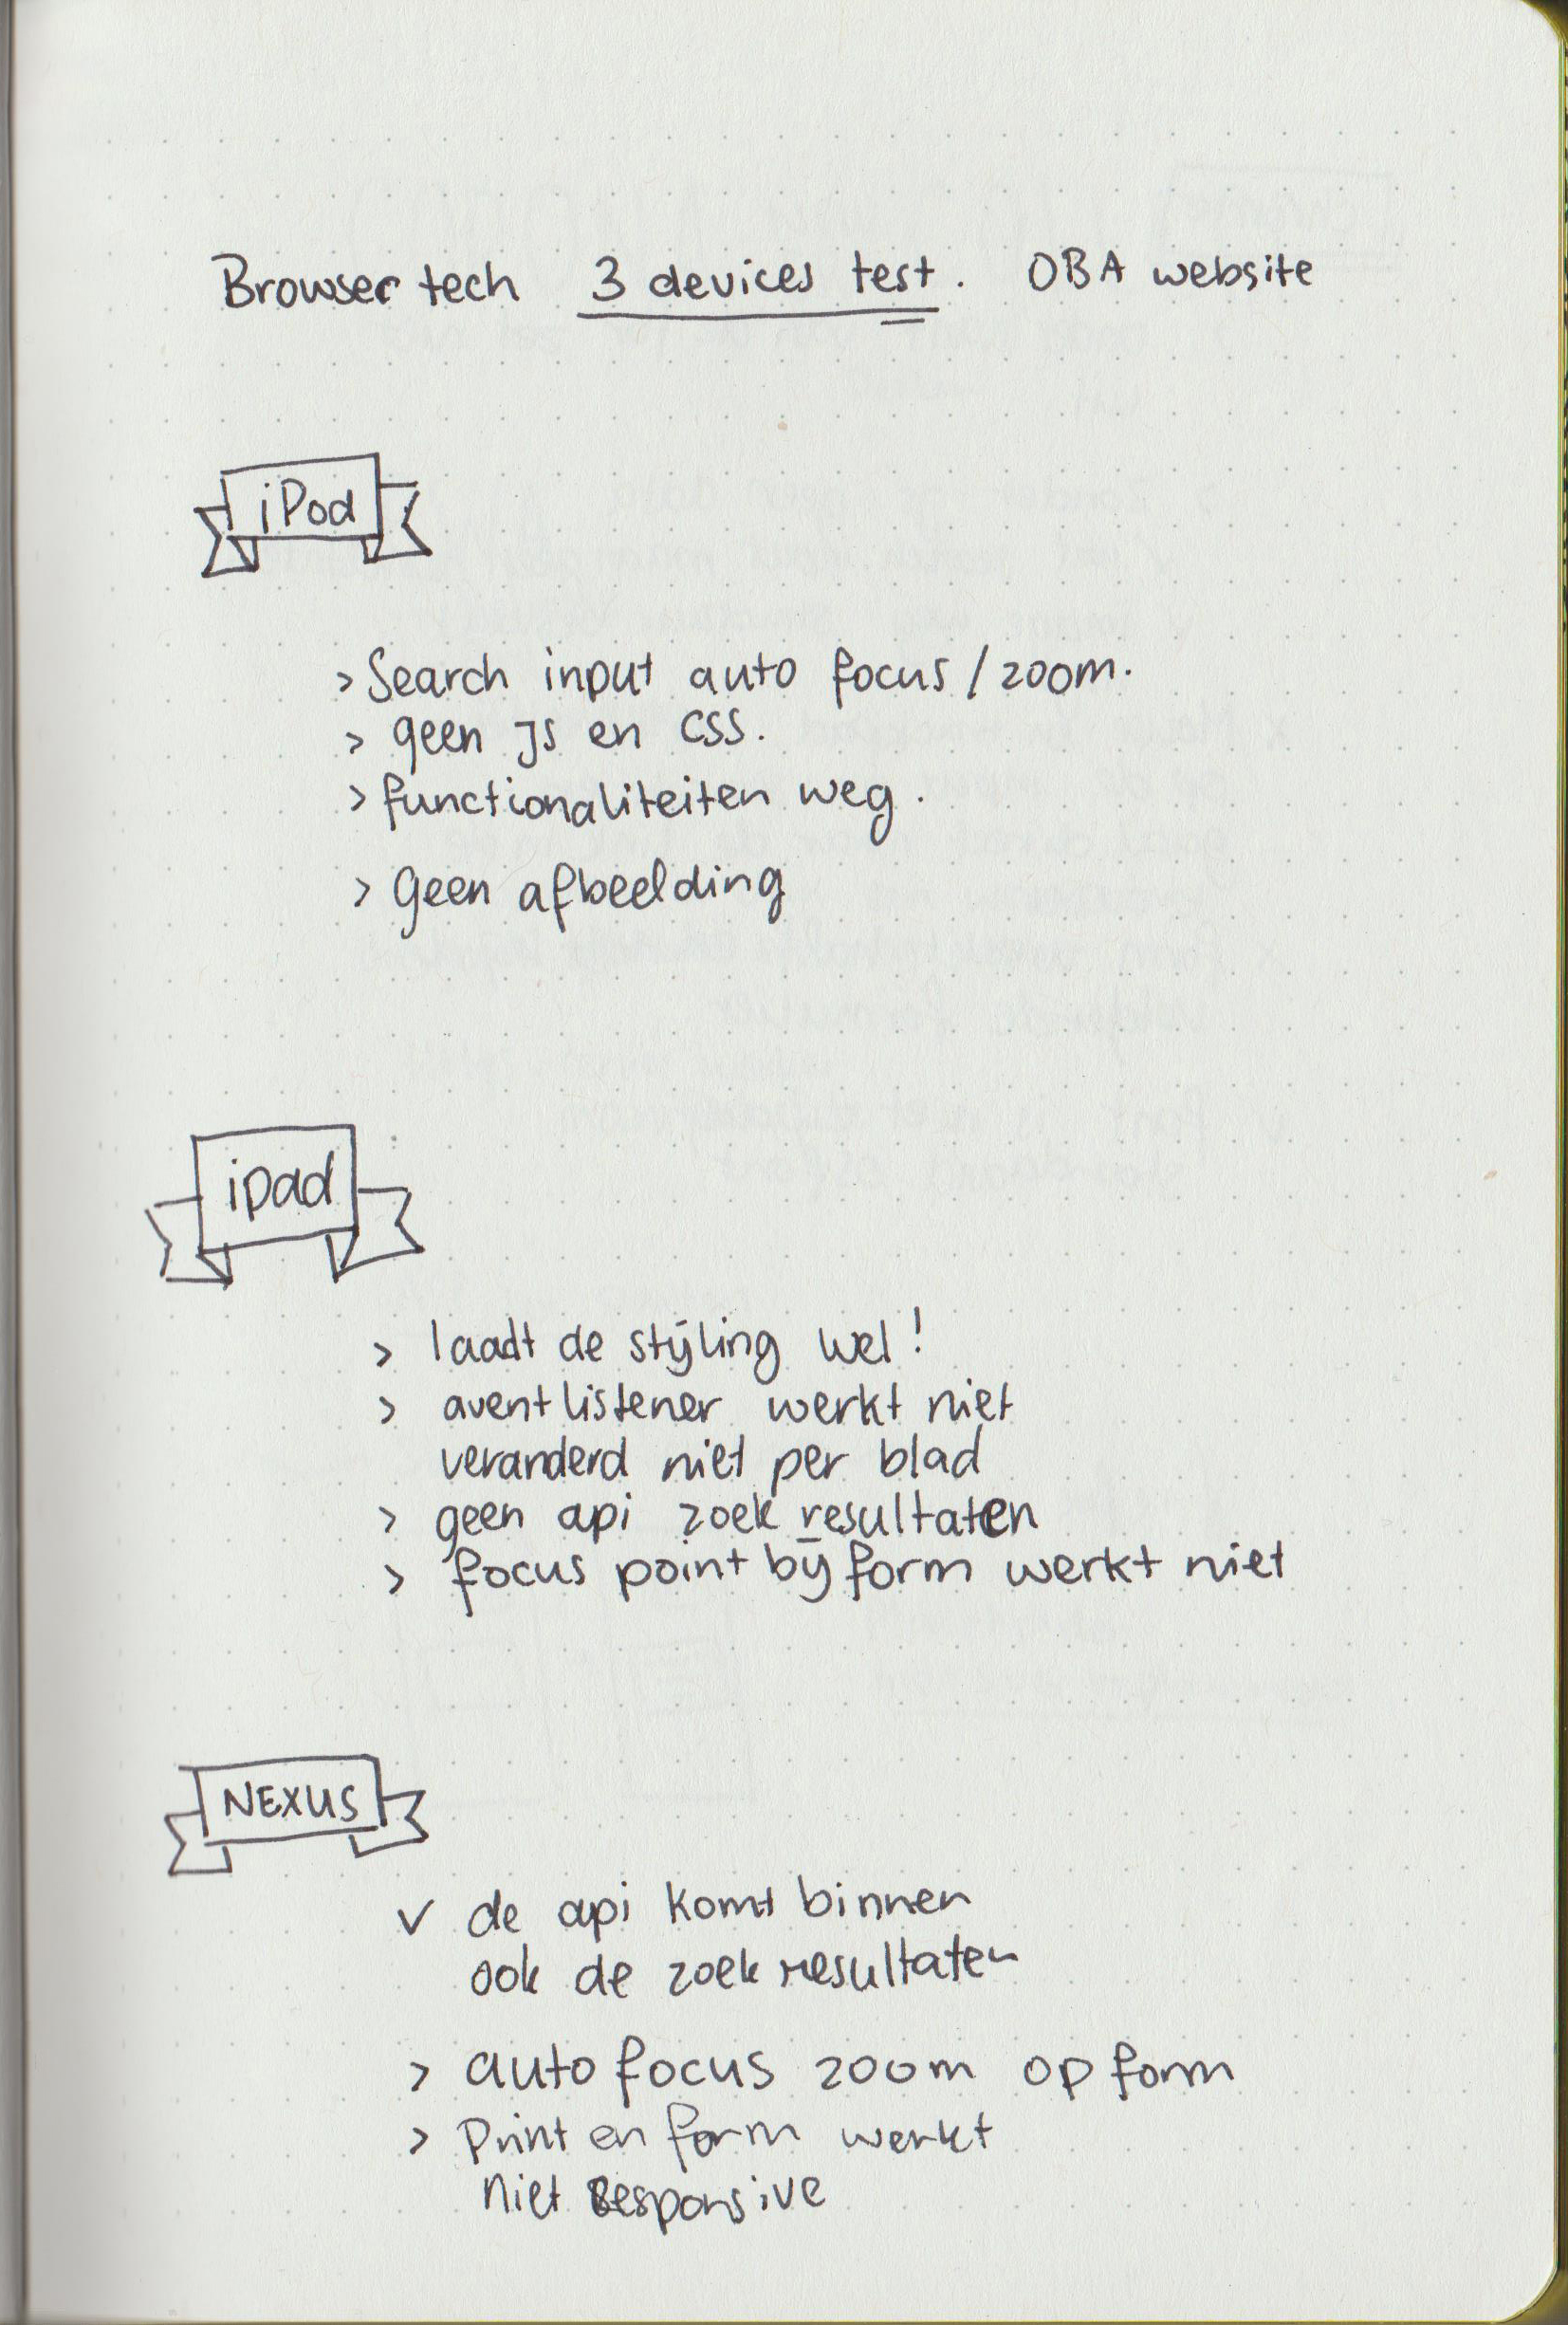 Browser tech 3 devices test. OBA website
iPod
> Search input auto focus / zoom.
> geen JS en CSS.
> functionaliteiten weg.
> Geen afbeelding
ipad
> laadt de stijling wel!
> aventlistener werkt niet
veranderd niet per blad
> geen api zoek resultaten
> focus point bij form werkt niet
NEXUS
v de api komt binnen
ook de zoek resultaten
> auto focus zoom op form
> Print en form werkt
niet Responsive